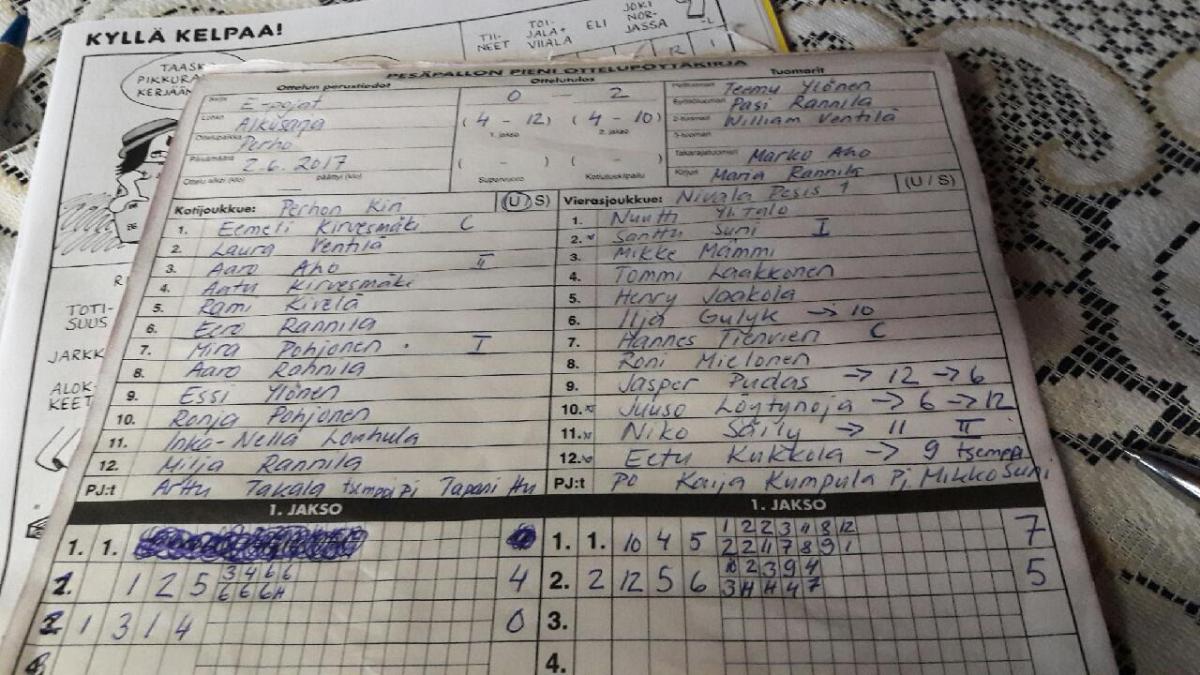 KYLLÄ KELPAA!
TII-
NEET
TOI-
JALA+
VIIALA
ELI
JOKI
NOR-
JASSA
TAASK
PIKKURA
KERJÄÄN
TOTI-
SUUS
JARKK
ALOK-
KEET
PESÄPALLON PIENI OTTELUPÖYTÄKIRJA
Ottelun perustiedot Ottelutulos Tuomarit
E-pojat 0 - 2 Teemu Ylönen
Lohko Alkusarja (4 - 12) (4 - 10) Pasi Rannila
Ottelupaikka Perho 1. jakso 2. jakso 2-tuomari William Ventilä
Päivämäärä 2.6.2017 ( - ) ( - ) 3-tuomari
Takarajatuomari Marko Aho
Ottelu alkoi (klo) päättyi (klo) Supervuoro Kotiutuskilpailu Kirjuri Maria Rannila
Kotijoukkue: Perhon Kiri (U/S) Vierasjoukkue: Nivala Pesis 1 (U/S)
1. Eemeli Kirvesmäki C 1. Nuutti Yli-Talo
2. Laura Ventilä 2. Santtu Suni I
3. Aaro Aho II 3. Mikke Mämmi
4. Aatu Kirvesmäki 4. Tommi Laakkonen
5. Rami Kivelä 5. Henry Jaakola
6. Eero Rannila 6. Ilja Gulyk → 10
7. Mira Pohjonen . I 7. Hannes Tienvieri C
8. Aaro Rannila 8. Roni Mielonen
9. Essi Ylönen 9. Jasper Pudas → 12 → 6
10. Ronja Pohjonen 10. Juuso Löytynoja → 6 → 12
11. Inka-Nella Louhula 11. Niko Säily → 11 II
12. Milja Rannila 12. Eetu Kukkola → 9 tsemppi
PJ:t Arttu Takala tsemppi Pj Tapani PJ:t PO Kaija Kumpula Pj Mikko Suni
1. JAKSO 1. JAKSO
1. 1. 1. 1. 10 4 5 1 2 2 3 11 8 12 7
2 2 11 7 8 9 1
1. 1 2 5 3 4 6 6 4 2. 2 12 5 6 10 2 3 9 4 5
2 1 3 1 4 0 3.
4.